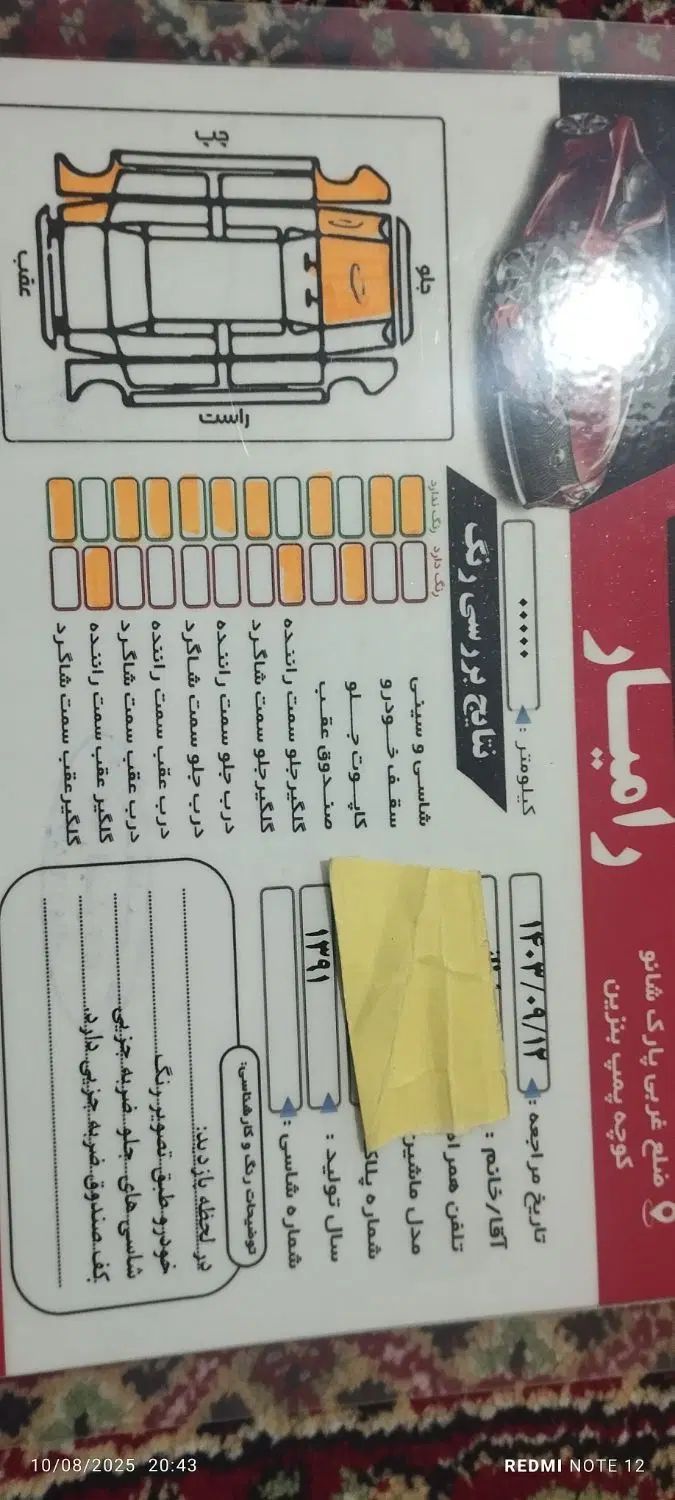 رامیـار
ضلع غربی پارک شانو
کوچه پمپ بنزین
تاریخ مراجعه : ۱۴۰۳/۰۹/۱۲
آقا/خانم :
تلفن همراه
مدل ماشین
شماره پلاک
سال تولید : ۱۳۹۱
شماره شاسی :
کیلومتر : ۰۰۰۰۰
نتایج بررسی رنگ
رنگ دارد رنگ ندارد
شاسی و سینی
سقف خودرو
کاپوت جلو
صندوق عقب
گلگیر جلو سمت راننده
گلگیر جلو سمت شاگرد
درب جلو سمت راننده
درب جلو سمت شاگرد
درب عقب سمت راننده
درب عقب سمت شاگرد
گلگیر عقب سمت راننده
گلگیر عقب سمت شاگرد
چپ
جلو
ت
عقب
راست
توضیحات رنگ و کارشناسی:
در لحظه بازدید:
خودرو طبق تصویر رنگ
شاسی های جلو ضربه جزیی
کف صندوق ضربه جزیی دارد
10/08/2025 20:43
REDMI NOTE 12